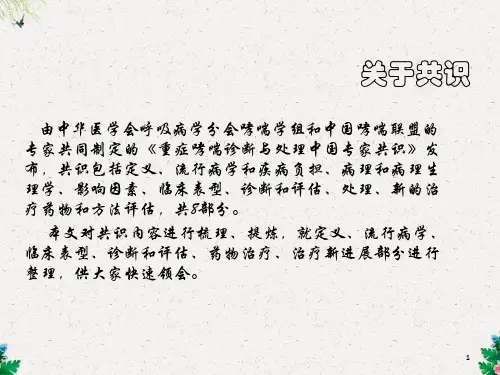 关于共识
由中华医学会呼吸病学分会哮喘学组和中国哮喘联盟的
专家共同制定的《重症哮喘诊断与处理中国专家共识》发
布，共识包括定义、流行病学和疾病负担、病理和病理生
理学、影响因素、临床表型、诊断和评估、处理、新的治
疗药物和方法评估，共8部分。
本文对共识内容进行梳理、提炼，就定义、流行病学、
临床表型、诊断和评估、药物治疗、治疗新进展部分进行
整理，供大家快速领会。
1